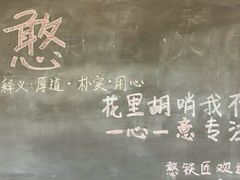 憨
释义:厚道·朴实·用心
花里胡哨我不
一心一意专注
憨铁匠欢